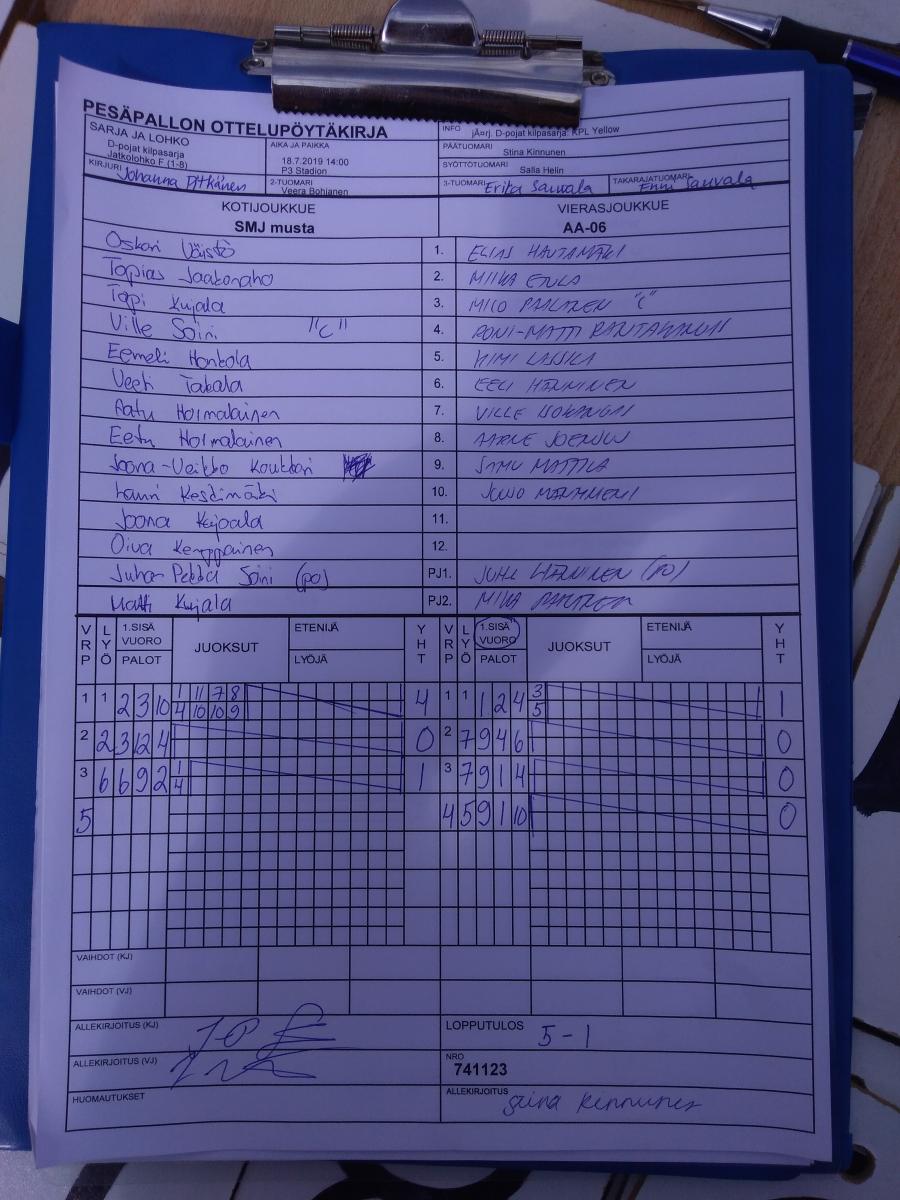 PESÄPALLON OTTELUPÖYTÄKIRJA
SARJA JA LOHKO
D-pojat kilpasarja
Jatkolohko F (1-8)
AIKA JA PAIKKA
18.7.2019 14:00
P3 Stadion
INFO jÄ¤rj. D-pojat kilpasarja: KPL Yellow
PÄÄTUOMARI
Stina Kinnunen
SYÖTTÖTUOMARI
Salla Helin
KIRJURI Johanna Pitkänen
2-TUOMARI
Veera Bohianen
3-TUOMARI Erika Sauvala
TAKARAJATUOMARI Enni Sauvala
KOTIJOUKKUE
SMJ musta
VIERASJOUKKUE
AA-06
Oskari Väistö 1. ELIAS HAUTAMÄKI
Topias Jaakonaho 2. MIIKA
Topi Kujala 3. MICO PAALANEN "C"
Ville Soini "C" 4. RONI-MATTI
Eemeli Honkola 5. KIMI
Veeti Takala 6. EELI HÄNNINEN
Aatu Holmalainen 7. VILLE
Eetu Holmalainen 8. AARNE
Joona-Veikko Koukkari 9. SAMU MATTILA
Lauri Keskimäki 10. JUUSO
Joona Kujoala 11.
Oiva Kemppainen 12.
Juha-Pekka Soini (po) PJ1. HÄNNINEN (PO)
Matti Kujala PJ2. MIKA
VRP LYÖ 1.SISÄ VUORO PALOT JUOKSUT ETENIJÄ LYÖJÄ YHT VRP LYÖ 1.SISÄ VUORO PALOT JUOKSUT ETENIJÄ LYÖJÄ YHT
1 1 2 3 10 1 11 7 8 4 1 1 1 2 4 3 1
4 10 10 9 5
2 2 3 12 4 0 2 7 9 4 6 0
3 6 6 9 2 1 1 3 7 9 1 4 0
4
5 4 5 9 1 10 0
VAIHDOT (KJ)
VAIHDOT (VJ)
ALLEKIRJOITUS (KJ)
LOPPUTULOS 5-1
ALLEKIRJOITUS (VJ)
NRO
741123
HUOMAUTUKSET
ALLEKIRJOITUS Stina Kinnunen